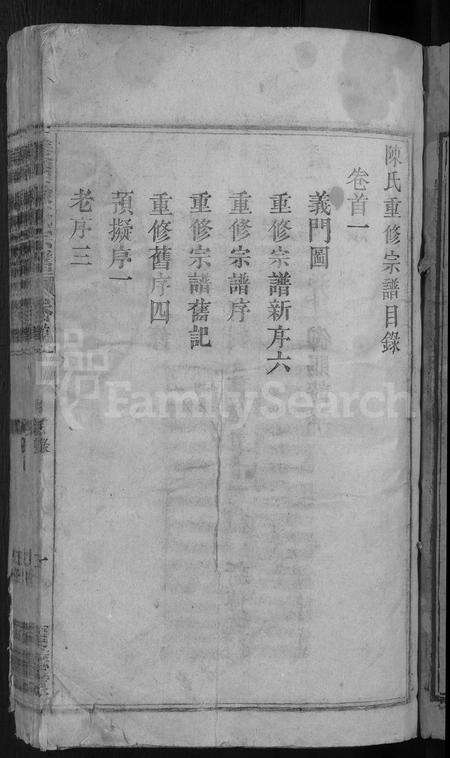 陳氏重修宗譜目錄
卷首一
義門圖
重修宗譜新序六
重修宗譜序
重修宗譜舊記
重修舊序四
預擬序一
老序三
FamilySearch